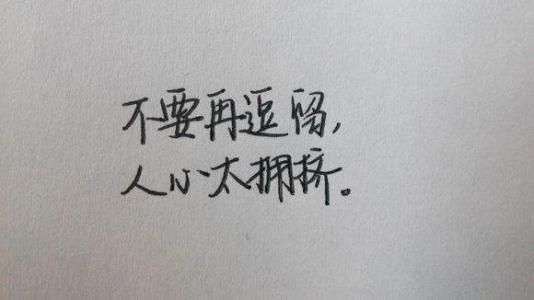 不要再逗留，
人心太拥挤。